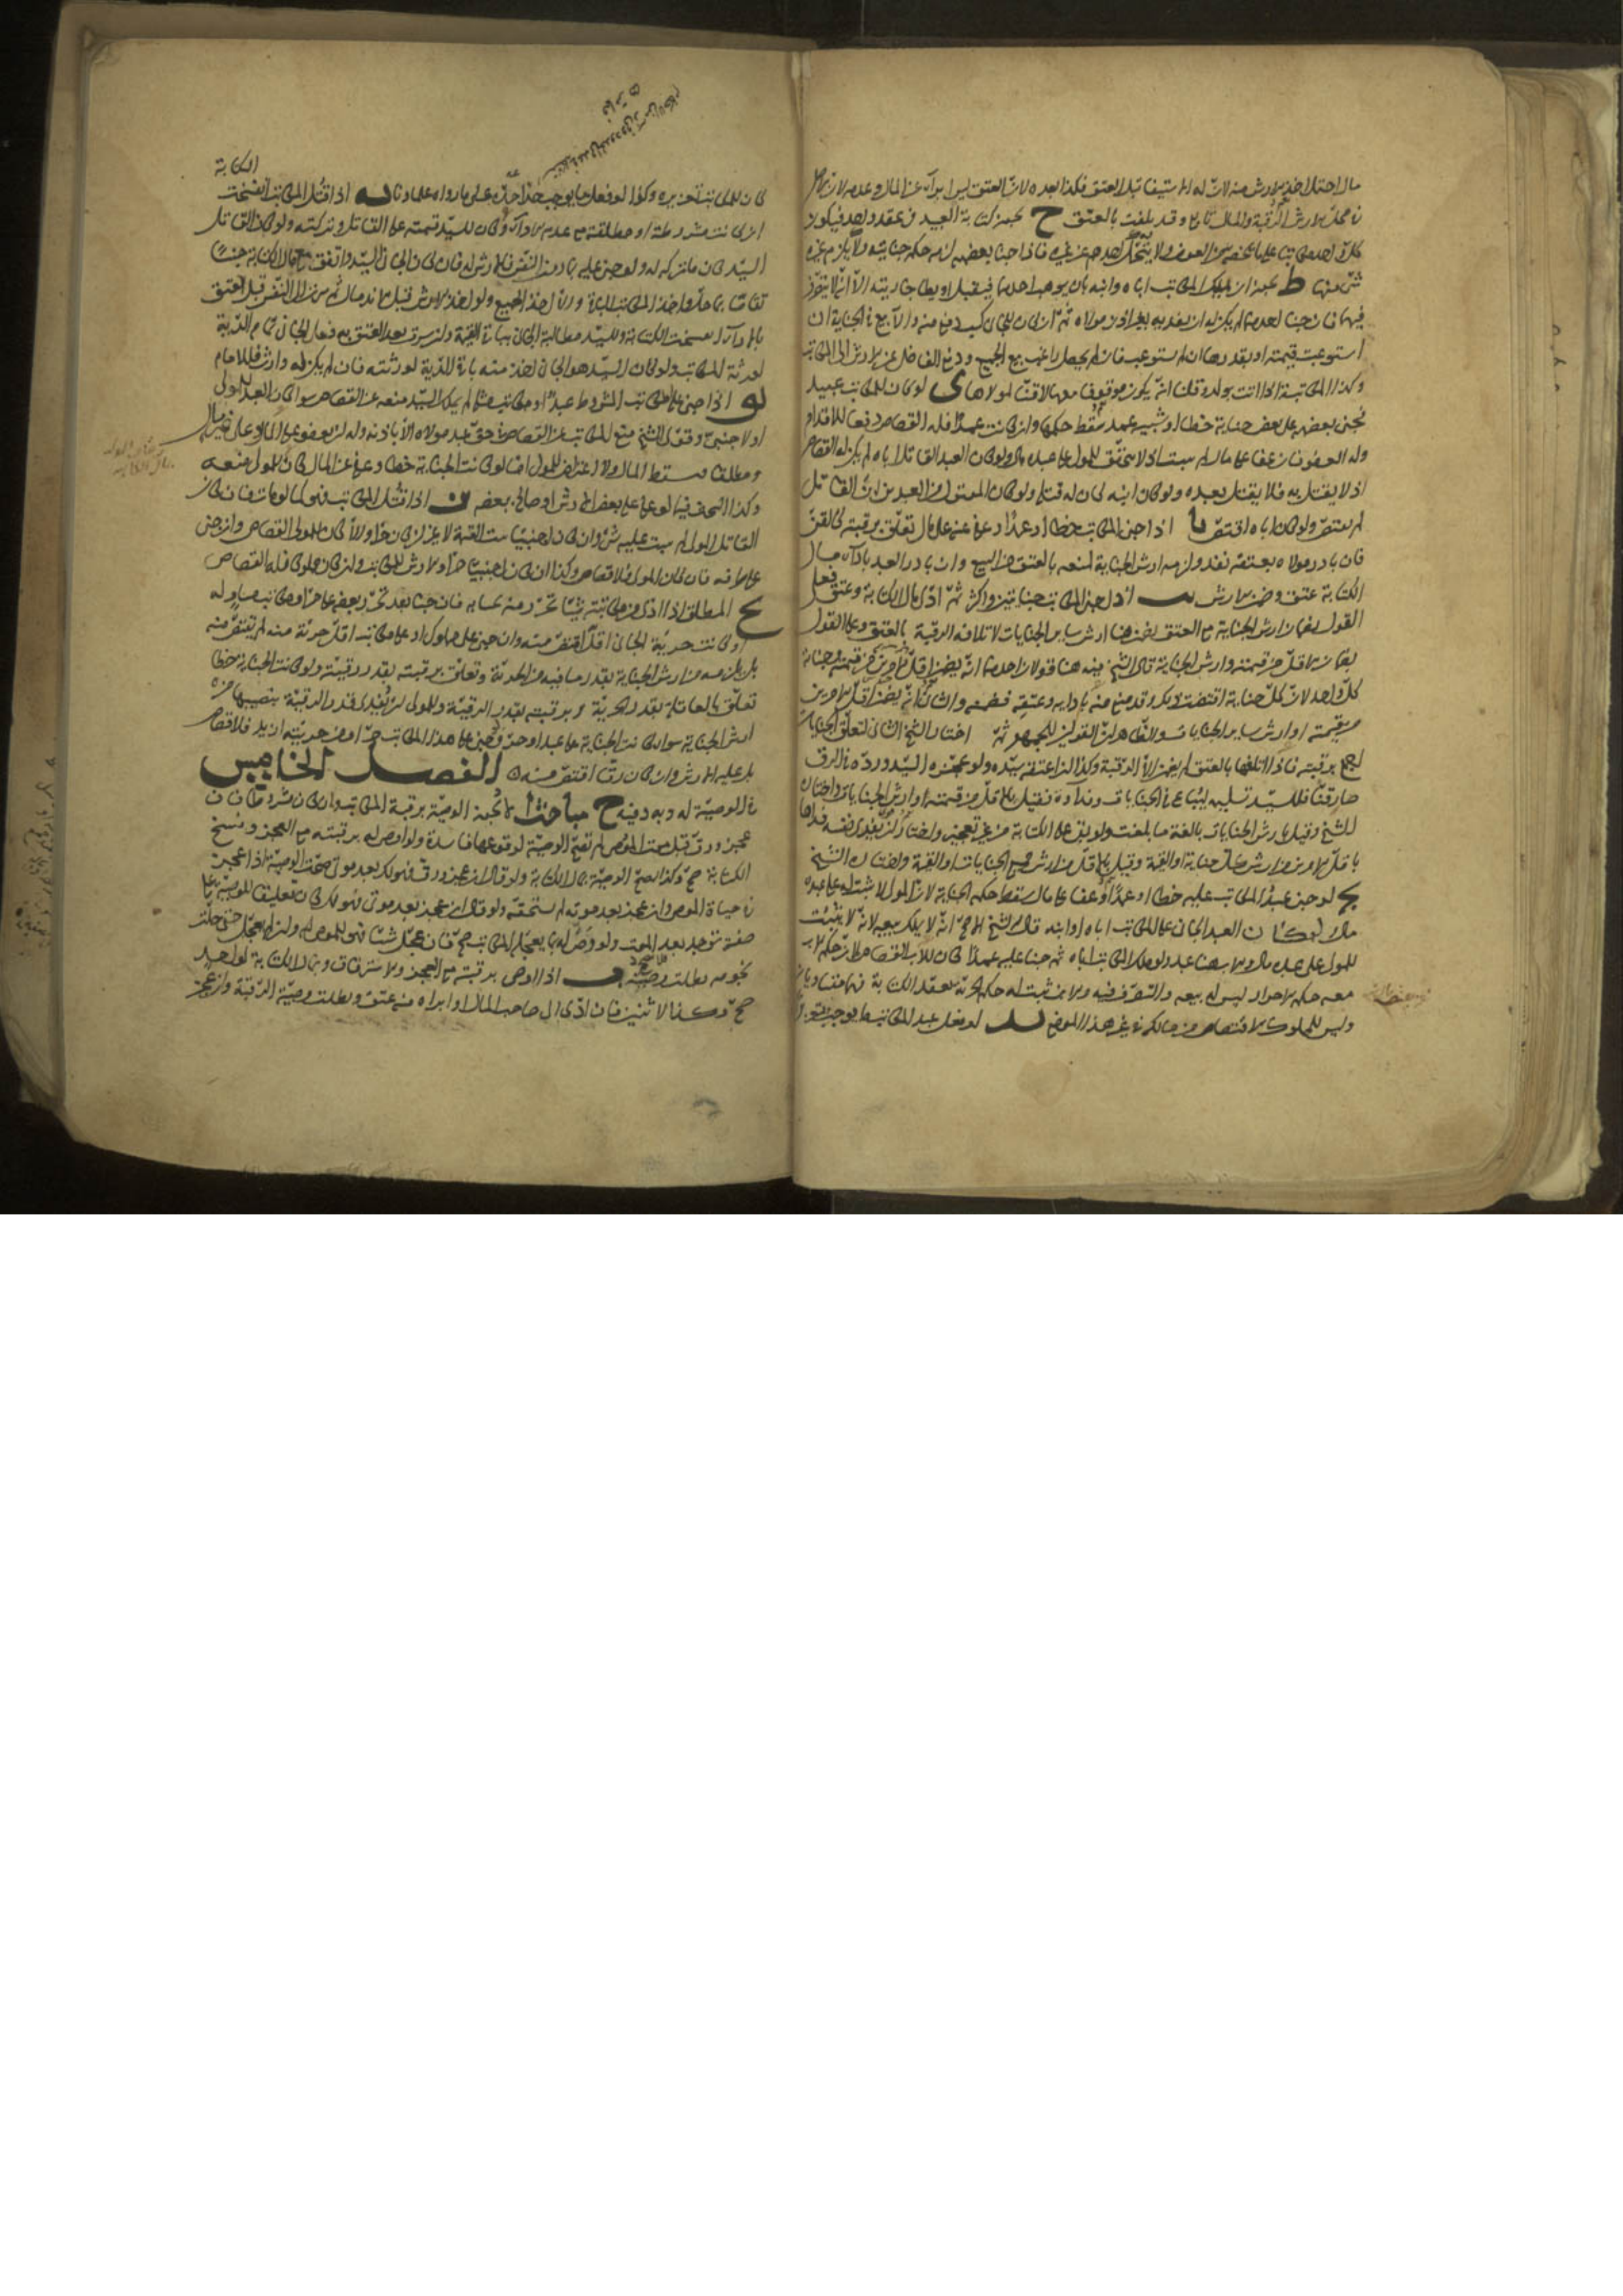 مال احتمل اخذ الارش منه لانّ له الاستيفاء قبل العتق فكذا بعده لانّ العتق ليس ابرآء عن المال وعدمه لان
محلّ الارش الرقبة والمال تابع وقد تلفت بالعتق ح يجوز كتابة العبيد فى عقد واحد فيكون
كلّ واحد مكاتبا على ما يخصّه من العوض ولا يتحمّل احدهم عن غيره فاذا جنا بعضهم لزمه حكم جنايته ولا يلزم غيره
شئ منها ط يجوز ان يملك المكاتب اباه وابنه بان يوهب احدهما فيقبل او يطأ جاريته الّا انّه لا يتصرّف
فيهما فان جنا احدهما لم يكن له ان يفديه بغير اذن مولاه ثمّ ان كان للجانى كسب دفع منه والّا بيع فى الجناية ان
استوعبت قيمته او بقدرها ان لم تستوعب فان لم يحصل راغب بيع الجميع ودفع الفاضل عن الارش الى المكاتب
وكذا المكاتبة اذا اتت بولد وقلنا انّه يكون موقوفا معها لا قنّا لمولاها ى لو كان للمكاتب عبيد
فجنى بعضهم على بعض جناية خطاء او شبيه عمد سقط حكمها وان كانت عمدًا فله القصاص دفعا للاقدام
وله العفو فان عفا على مال لم يثبت اذ لا يستحقّ المولى على عبده مالا ولو كان العبد القاتل اباه لم يكن له القصاص
اذ لا يقتل به فلا يقتل بعبده ولو كان ابنه كان له قتله ولو كان المقتول من العبدين ابن القاتل
لم يقتصّ ولو كان اباه اقتصّ يا اذا جنى المكاتب خطاء او عمدًا وعفى عنه على مال تعلّق برقبته كالقنّ
فان بادر مولاه بعتقه نفذ ولزمه ارش الجناية لمنعه بالعتق من البيع وان بادر العبد بادآء مال
الكتابة عتق وضمن الارش يب اذا جنى المكاتب جنايتين واكثر ثمّ ادّى مال الكتابة وعتق فعلى
القول بضمان ارش الجناية مع العتق يضمن هنا ارش ساير الجنايات لاتلافه الرقبة بالعتق وعلى القول
بضمان الاقلّ من قيمته وارش الجناية قال الشيخ فيه هنا قولان احدهما انّه يضمن اقلّ الامرين من قيمته وجناية
كلّ واحد لانّ كلّ جناية اقتضت ذلك وقد منع منه بادايه وعتقه فضمنه والثانى انّه يضمن اقلّ الامرين
من قيمته او ارش ساير الجنايات والظاهر انّ القولين للجمهور ثمّ اختار الشيخ الثانى لتعلّق الجنايات
اجمع برقبته فاذا اتلفها بالعتق لم يضمن الّا الرقبة وكذا لو اعتقه سيّده ولو عجّزه السيّد وردّه فى الرق
صار قنّا فللسيّد تسليمه ليباع فى الجنايات وفدآؤه فقيل بالاقلّ من قيمته او ارش الجنايات واختاره
الشيخ وقيل بارش الجنايات بالغة ما بلغت ولو بقى على الكتابة من غير تعجيز واختار ان يفدى نفسه فداها
باقلّ الامرين من ارش كلّ جناية او القيمة وقيل بالاقلّ من ارش جميع الجنايات او القيمة واختاره الشيخ
يج لو جنى عبد المكاتب عليه خطاء او عمدًا وعفا على مال سقط حكم الجناية لانّ المولى لا يثبت له على عبده
مال ولو كان العبد الجانى على المكاتب اباه او ابنه قال الشيخ الاصحّ انّه لا يملك بيعه لانّه لا يثبت
للمولى على عبده مال والاب هنا عبد ولو ملك المكاتب اباه ثم جنا عليه عمدًا كان للاب القصاص لانّ حكم الاب
معه حكم الاحرار ليس له بيعه والتصرّف فيه والابن ثبت له حكم الحريّة بعقد الكتابة فهما متساويان
وليس للمملوك الاقتصاص من مالكه فى غير هذا الموضع يد لو فعل عبد المكاتب ما يوجب تعزيرًا
كان للمكاتب تعزيره وكذا لو فعل ما يوجب حدًّا حدّه على ما رواه علماؤنا يه اذا قُتل المكاتب انفسخت
الكتابة
ان كانت مشروطة او مطلقة مع عدم الادآء وكان للسيّد قيمته على القاتل وتركته ولو كان القاتل
السيّد كان ما تركه له ولو جنى عليه بما دون النفس فالارش له فان كان الجانى السيّد واتفق مال الكتابة جنسًا
تقاصّا بما حلّ واخذ المكاتب الباقى والّا اخذ الجميع ولو اخذ الارش قبل الاندمال ثم سرت الى النفس قبل العتق
بالادآء انفسخت الكتابة وللسيّد مطالبة الجانى بباقى القيمة وان سرت بعد العتق به فعلى الجانى تمام الدّية
لورثة المكاتب ولو كان السيّد هو الجانى اخذ منه باقى الدّية لورثته فان لم يكن له وارث فللامام
يو اذا جنى على المكاتب المشروط عبدًا او مكاتب مثله لم يملك السيّد منعه عن القصاص سواء كان العبد للمولى
او لاجنبىّ وقوّى الشيخ منع المكاتب عن القصاص فى حقّ عبد مولاه الّا باذنه وله ان يعفو على المال وعلى غير مال
ومطلقا وسقط المال ولا اعتراض للمولى امّا لو كانت الجناية خطاء وعفى عن المال كان للمولى منعه
وكذا البحث فيما لو عفى على بعض الارش او صالح ببعض يز اذا قُتل المكاتب فهو كما لو مات فان كان
القاتل المولى لم يجب عليه شئ وان كان اجنبيّا وجبت القيمة لا غير ان كان حرّا والّا كان للمولى القصاص وان جنى
على طرفه فان كان المولى فلا قصاص وكذا ان كان اجنبيّا حرّا والارش للمكاتب وان كان مملوكا فله القصاص
يح المطلق اذا ادّى من مكاتبته شيئا تحرّر منه بحسابه فان جنا بعد تحرّر بعضه على حرّ او مكاتب مساوٍ له
او كانت حريّة الجانى اقلّ اقتصّ منه وان جنى على مملوك او على مكاتب اقلّ حريّة منه لم يقتصّ منه
بل يلزمه من ارش الجناية بقدر ما فيه من الحريّة وتعلّق برقبته بقدر رقيّته ولو كانت الجناية خطاء
تعلّق بالعاقلة بقدر الحريّة وبرقبته بقدر الرقيّة وللمولى ان يفدى قدر الرقيّة بنصيبها من
ارش الجناية سواء كانت الجناية على عبد او حرّ ولو جنى على هذا المكاتب حرّ او من حريّته ازيد فلا قصاص
بل عليه الارش وان كان رقّا اقتصّ منه الفصل الخامس
فى الوصيّة له وبه وفيه ح مباحث ا لا تجوز الوصيّة برقبة المكاتب وان كان مشروطا فان
عجز ورقّ قبل موت الموصى لم تصحّ الوصيّة لوقوعها فاسدة ولو اوصى له برقبته مع العجز وفسخ
الكتابة صحّ وكذا تصحّ الوصيّة بمال الكتابة ولو قال ان عجز ورقّ فهو لك بعد موتى صحّت الوصيّة اذا عجز
فى حياة الموصى وان عجز بعد موته لم يستحقّه ولو قال ان عجز بعد موتى فهو لك كان تعليقا للوصيّة على
صفة توجد بعد الموت ولو وصّى له بما يعجّله المكاتب صحّ فان عجّل شيئا فهو للموصى له وان لم يعجّل حتى حلّت
نجومه بطلت الوصيّة ب اذا اوصى برقبته مع العجز والاسترقاق وبمال الكتابة لواحد
صحّ وكذا لاثنين فان ادّى الى صاحب المال او ابراه منه عتق وبطلت وصيّة الرّقبة وان عجز